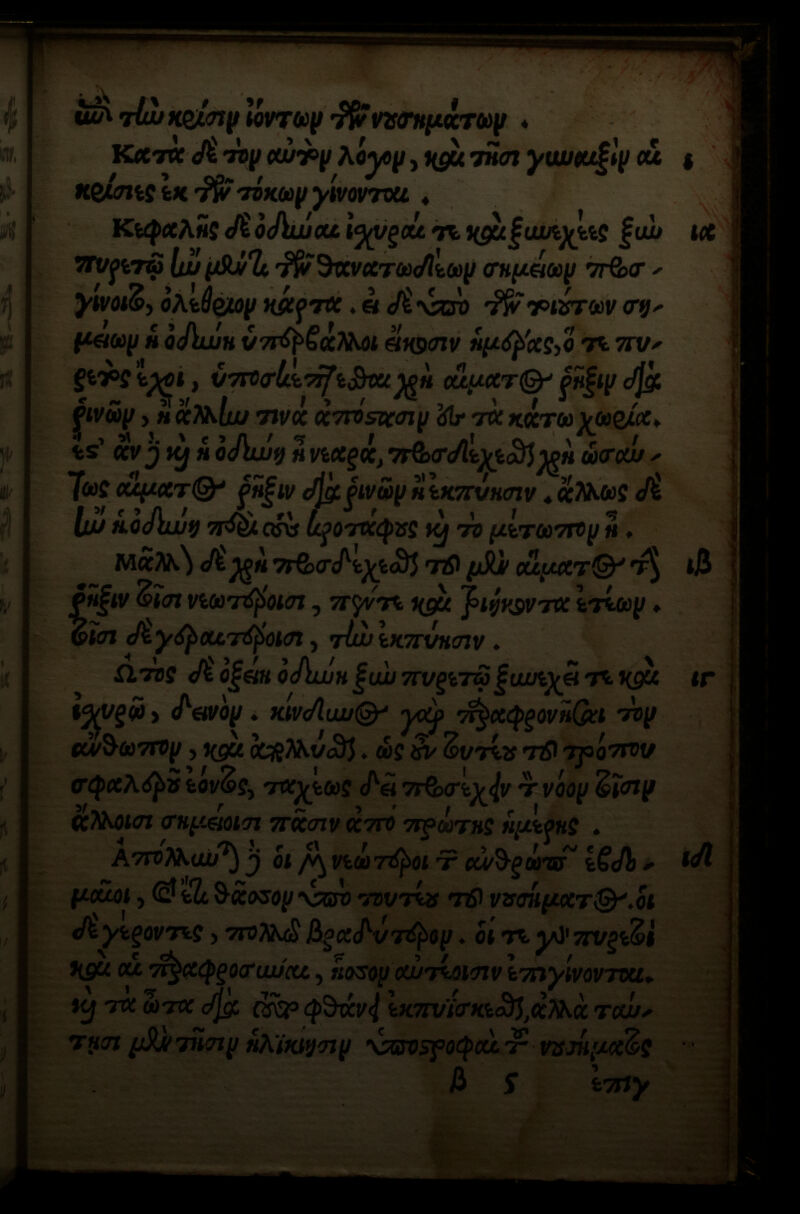 ἀπὸ τὴν κρίσιν ἰόντων τῶν νοσημάτων .
Κατὰ δὲ τὸν αὐτὸν λόγον, καὶ τῇσι γυναιξὶν αἱ ϛ
κρίσιες ἐκ τῶν τόκων γίνονται .
Κεφαλῆς δὲ ὀδύναι ἰσχυραί τε καὶ ξυνεχέες ξὺν ια
πυρετῷ ἢν μέν τι τῶν θανατωδέων σημείων προσ-
γίνοιτο, ὀλέθριον κάρτα . εἰ δὲ ὑπὸ τῶν τοιούτων ση-
μείων ἡ ὀδύνη ὑπερβάλλοι εἴκοσιν ἡμέρας, ὅ τε πυ-
ρετὸς ἔχοι, ὑποσκέπτεσθαι χρὴ αἵματος ῥῆξιν διὰ
ῥινῶν, ἢ ἄλλην τινὰ ἀπόστασιν εἰς τὰ κάτω χωρία.
ἔς τ' ἂν δὲ καὶ ἡ ὀδύνη ᾖ νεαρά, προσδέχεσθαι χρὴ ὡσαύ-
τως αἵματος ῥῆξιν διὰ ῥινῶν ἢ ἐκπύησιν . ἄλλως δὲ
ἢν ἡ ὀδύνη περὶ τοὺς κροτάφους καὶ τὸ μέτωπον ᾖ .
Μᾶλλον δὲ χρὴ προσδέχεσθαι τοῦ μὲν αἵματος τὴν ιβ
ῥῆξιν τοῖσι νεωτέροισι, πέντε καὶ τριήκοντα ἐτέων .
τοῖσι δὲ γεραιτέροισι, τὴν ἐκπύησιν .
Ὠτὸς δὲ ὀξείη ὀδύνη ξὺν πυρετῷ ξυνεχεῖ τε καὶ ιγ
ἰσχυρῷ, δεινὸν . κίνδυνος γὰρ παραφρονῆσαι τὸν
ἄνθρωπον, καὶ ἀπολλύσθαι. ὡς οὖν τουτέου τοῦ τρόπου
σφαλεροῦ ἐόντος, ταχέως δεῖ προσέχειν τὸν νόον τοῖσιν
ἄλλοισι σημείοισι πᾶσιν ἀπὸ πρώτης ἡμέρης .
Ἀπόλλυνται δὲ οἱ μὲν νεώτεροι τῶν ἀνθρώπων ἑβδο- ιδ
μαῖοι, καὶ ἔτι θᾶσσον ὑπὸ τουτέου τοῦ νοσήματος. οἱ
δὲ γέροντες, πολλῷ βραδύτερον . οἵ τε γὰρ πυρετοὶ
καὶ αἱ παραφροσύναι, ἧσσον αὐτέοισιν ἐπιγίνονται.
καὶ τὰ ὦτα διὰ τοῦτο φθάνει ἐκπυΐσκεσθαι, ἀλλὰ ταύ-
τῃσι μὲν τῇσιν ἡλικίῃσιν ὑποστροφαὶ τοῦ νοσήματος
β ς ἐπιγ